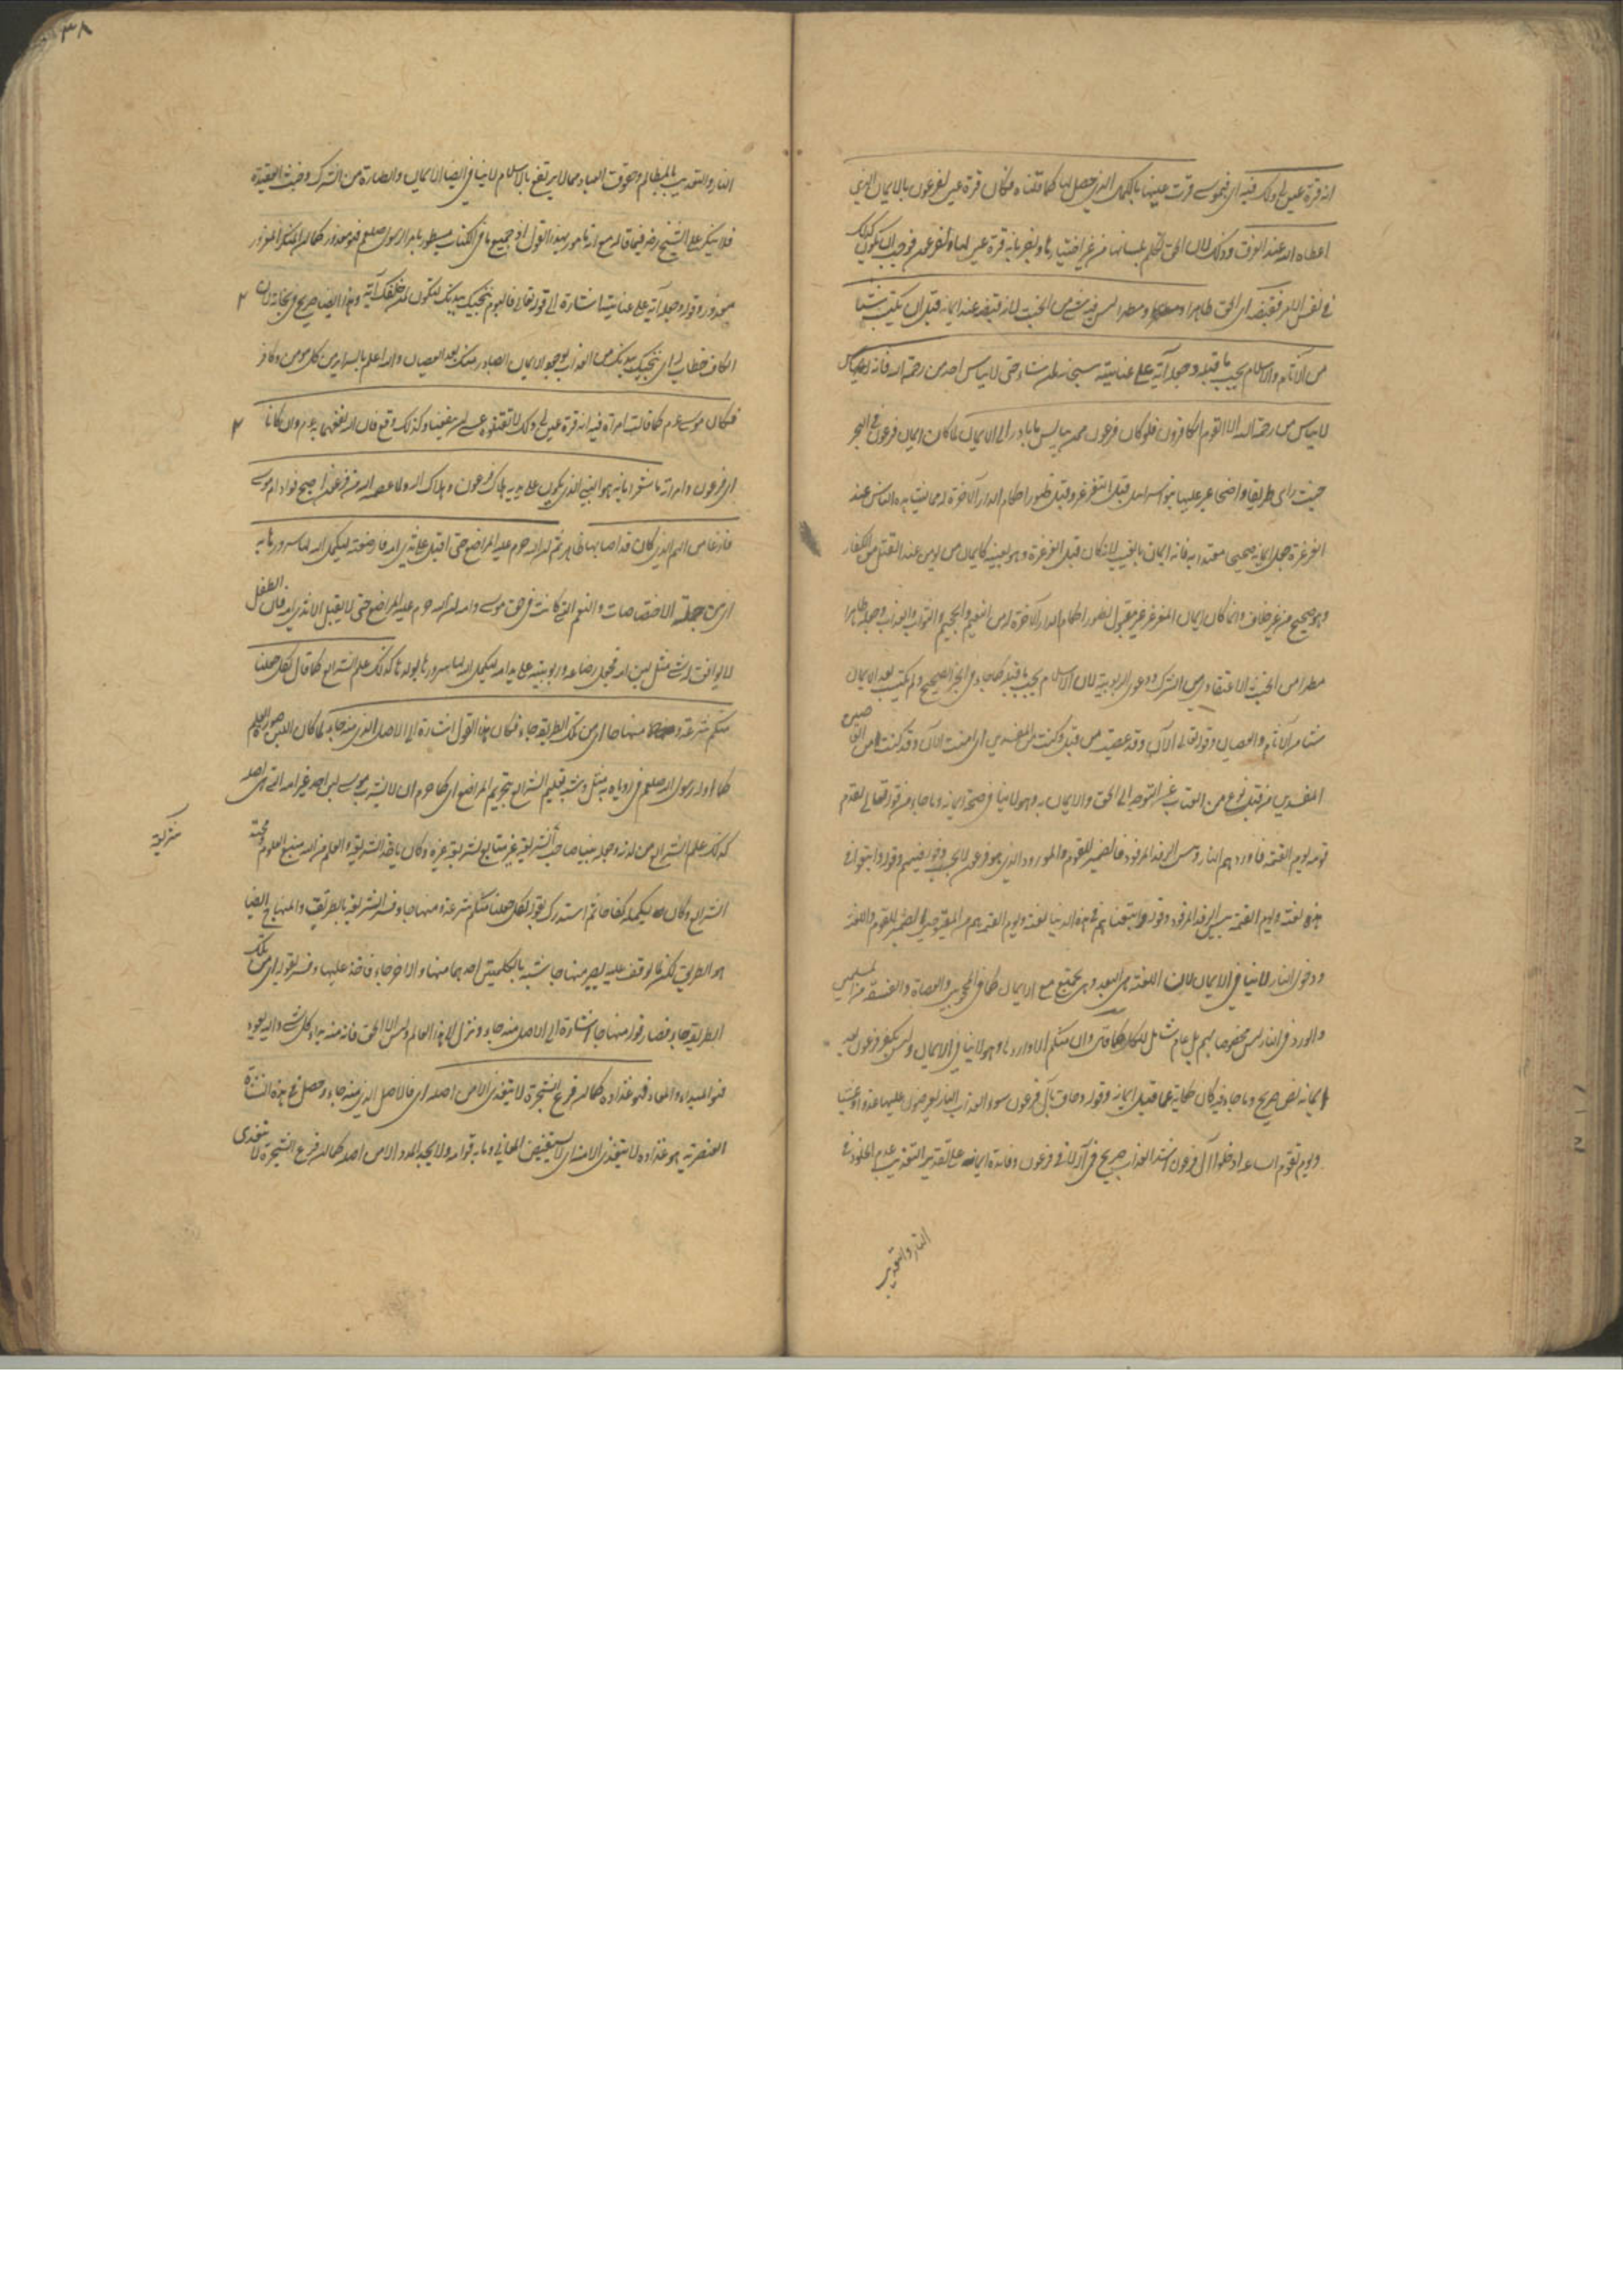 انه قرة عين لي ولك فيه اى فبموسى قرت عينها بالكمال الذى حصل لها كما قلناه فكان قرة عين لفرعون بالايمان الذى
اعطاه الله عند الغرق وذلك لان الحق تكلم بلسانها من غير اختيارها وليخبر بانه قرة عين لها ولفرعون فوجب ان يكون كذلك
فى نفس الامر فقبضه اى الحق طاهرا ومطهرا ليس فيه شئ من الخبث لانه قبضه عند ايمانه قبل ان يكتسب شيئا
من الآثام والاسلام يجب ما قبله وجعله آية على عنايته سبحانه لمن شاء حتى لا ييأس احد من رحمة الله فانه
لا ييأس من رحمة الله الا القوم الكافرون فلو كان فرعون ممن ييأس ما بادر الى الايمان لما كان ايمان فرعون فى البحر
حيث راى طريقا واضحا عبر عليها بنو اسرائيل قبل التغرغر وقبل ظهور احكام الدار الآخرة له مما يشاهده الناس عند
الغرغرة جعل ايمانه صحيحا معتدا به فانه ايمان بالغيب لانه كان قبل الغرغرة وهو بعينه كايمان من يومن عند القتل من الكفار
وهو صحيح من غير خلاف وانما كان ايمان المتغرغر غير مقبول لظهور احكام الدار الآخرة له من النعيم والجحيم والثواب والعذاب وجعله طاهرا
مطهرا من الخبث الاعتقادى من الشرك ودعوى الربوبية لان الاسلام يجب ما قبله كما جاء فى الخبر الصحيح ولم يكتسب بعد الايمان
شيئا من الآثام والعصيان وقوله تعالى الآن وقد عصيت من قبل وكنت من المفسدين اى امنت الآن وقد كنت من
المفسدين من قبل نوع من العتاب عند التوجه الى الحق والايمان به وهو لا ينافى صحة ايمانه وما جاء من قوله تعالى يقدم
قومه يوم القيمة فاوردهم النار وبئس الرفد المرفود فالضمير للقوم والمورود الذى هو فرعون لا يجب دخوله فيهم وقوله واتبعوا فى
هذه لعنة ويوم القيمة بئس الرفد المرفود وقوله واتبعناهم فى هذه الدنيا لعنة ويوم القيمة هم من المقبوحين الضمير للقوم واللعنة
ودخول النار لا ينافى الايمان لان اللعنة هى البعد وهى يجتمع مع الايمان كما فى المحجوبين والعصاة والفسقة من المسلمين
والورود فى النار ليس مخصوصا بهم بل عام شامل للكل كما قال وان منكم الا واردها وهو لا ينافى الايمان وليس بكفر فرعون بعد
ايمانه نص صريح وما جاء فيه كان حكاية عما قبل ايمانه وقوله وحاق بآل فرعون سوء العذاب النار يعرضون عليها غدوا وعشيا
ويوم تقوم الساعة ادخلوا آل فرعون اشد العذاب صريح فى آله لا فى فرعون وفائدة ايمانه على تقدير التعذيب عدم الخلود فى
النار والتعذيب
٣٨
النار والتعذيب بالمظالم وحقوق العباد مما لا يرتفع بالاسلام لا ينافى ايضا الايمان والطهارة من الشرك وخبث العقيدة
فلا ينكر على الشيخ رضه فيما قاله مع انه مامور بهذا القول اذ جميع ما فى الكتاب مسطور بامر الرسول صلعم فهو معذور كما ان المنكر المغرور
معذور وقوله وجعله آية على عنايته اشارة الى قوله تعالى فاليوم ننجيك ببدنك لتكون لمن خلفك آية وهذا ايضا صريح فى نجاته لان
الكاف خطاب له اى ننجيك ببدنك من العذاب بوجود الايمان الصادر منك بعد العصيان والله اعلم بالسراير من كل مومن وكافر
فكان موسى عم كما قالت امراة فرعون فيه انه قرة عين لى ولك لا تقتلوه عسى ان ينفعنا وكذلك وقع فان الله نفعهما به عم وان كانا
اى فرعون وامراته ما شعرا بانه هو النبى الذى يكون على يديه هلاك فرعون وهلاك آله ولما عصمه الله من فرعون اصبح فؤاد ام موسى
فارغا من الهم الذى كان قد اصابها ثم ان الله حرم عليه المراضع حتى اقبل على ثدى امه فارضعته ليكمل الله لها سرورها به
اى من جملة الاختصاصات والنعم التى كانت فى حق موسى وامه ان الله حرم عليه المراضع حتى لا يقبل الا ثدى امه فان الطفل
لا يوافقه شئ مثل لبن امه فجعل رضاعه وتربيته على يد امه ليكمل الله لها سرورها بولدها كذلك علم الشرائع كما قال لكل جعلنا
منكم شرعة ومنهاجا اى من تلك الطريقة جاء فكان هذا القول اشارة الى الاصل الذى منه جاء لما كان اللبن صورة العلم
كما اوله رسول الله صلعم فى روياه به مثل وشبه تعليم الشرائع بتحريم المراضع اى كما حرم ان لا يشرب موسى لبن احد غير امه التى هى اصله
كذلك علم الشرائع من لدنه وجعله نبيا صاحب الشريعة غير متابع لشريعة غيره وكان ياخذ الشريعة والعلم من الله منبع العلوم
الشرائع وكان يكلمه كفاحا ثم استدرك بقوله لكل جعلنا منكم شرعة ومنهاجا وفسر الشريعة بالطريقة والمنهاج ايضا
هو الطريق لكن لما توقف عليه يصير منهاجا شبه بالكلمتين احدهما منها والاخر جاء فاخذ عليها وفسر بقوله اى من تلك
الطريقة جاء فصار قوله منهاجا اشارة الى الاصل منه جاء ونزل الى هذا العالم وليس الا الحق فانه منه بداء كل شئ واليه يعود
فهو المبداء والمعاد فهو غذاوه كما ان فرع الشجرة لا يتغذى الا من اصله اى فالاصل الذى منه جاء وحصل فى هذه النشاة
العنصرية هو غذاوه لا يتغذى الا منه اى لا يستفيض المعانى وما به قوامه ولا يجد المدد الا من اصله كما ان فرع الشجرة لا يتغذى